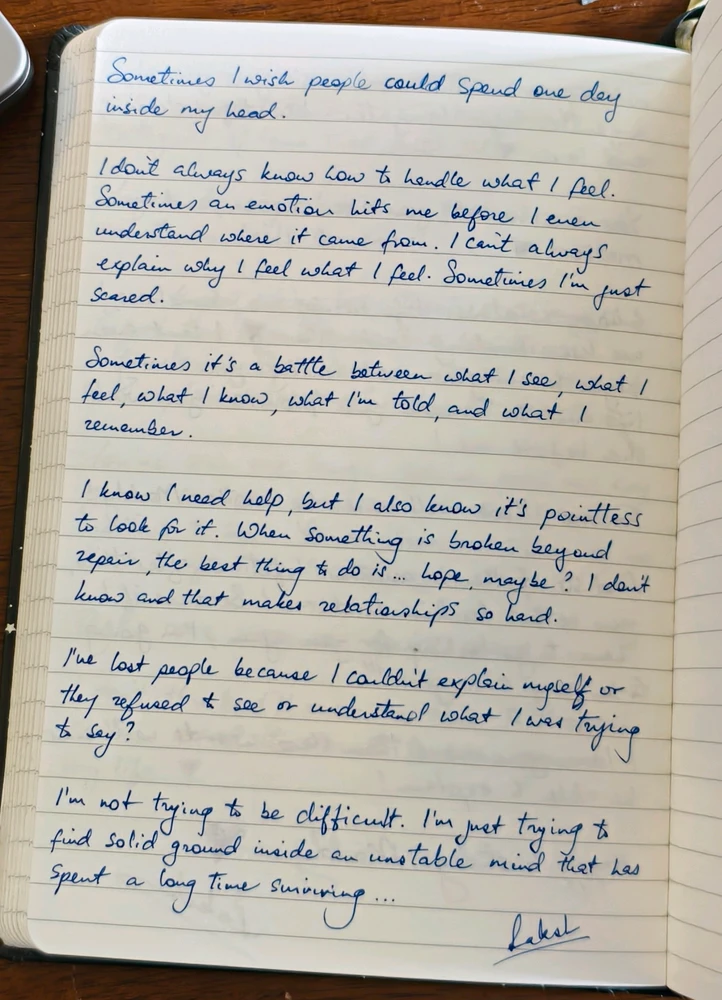 Sometimes I wish people could spend one day
inside my head.
I don't always know how to handle what I feel.
Sometimes an emotion hits me before I even
understand where it came from. I can't always
explain why I feel what I feel. Sometimes I'm just
scared.
Sometimes it's a battle between what I see, what I
feel, what I know, what I'm told, and what I
remember.
I know I need help, but I also know it's pointless
to look for it. When something is broken beyond
repair, the best thing to do is... hope, maybe? I don't
know and that makes relationships so hard.
I've lost people because I couldn't explain myself or
they refused to see or understand what I was trying
to say?
I'm not trying to be difficult. I'm just trying to
find solid ground inside an unstable mind that has
spent a long time surviving...